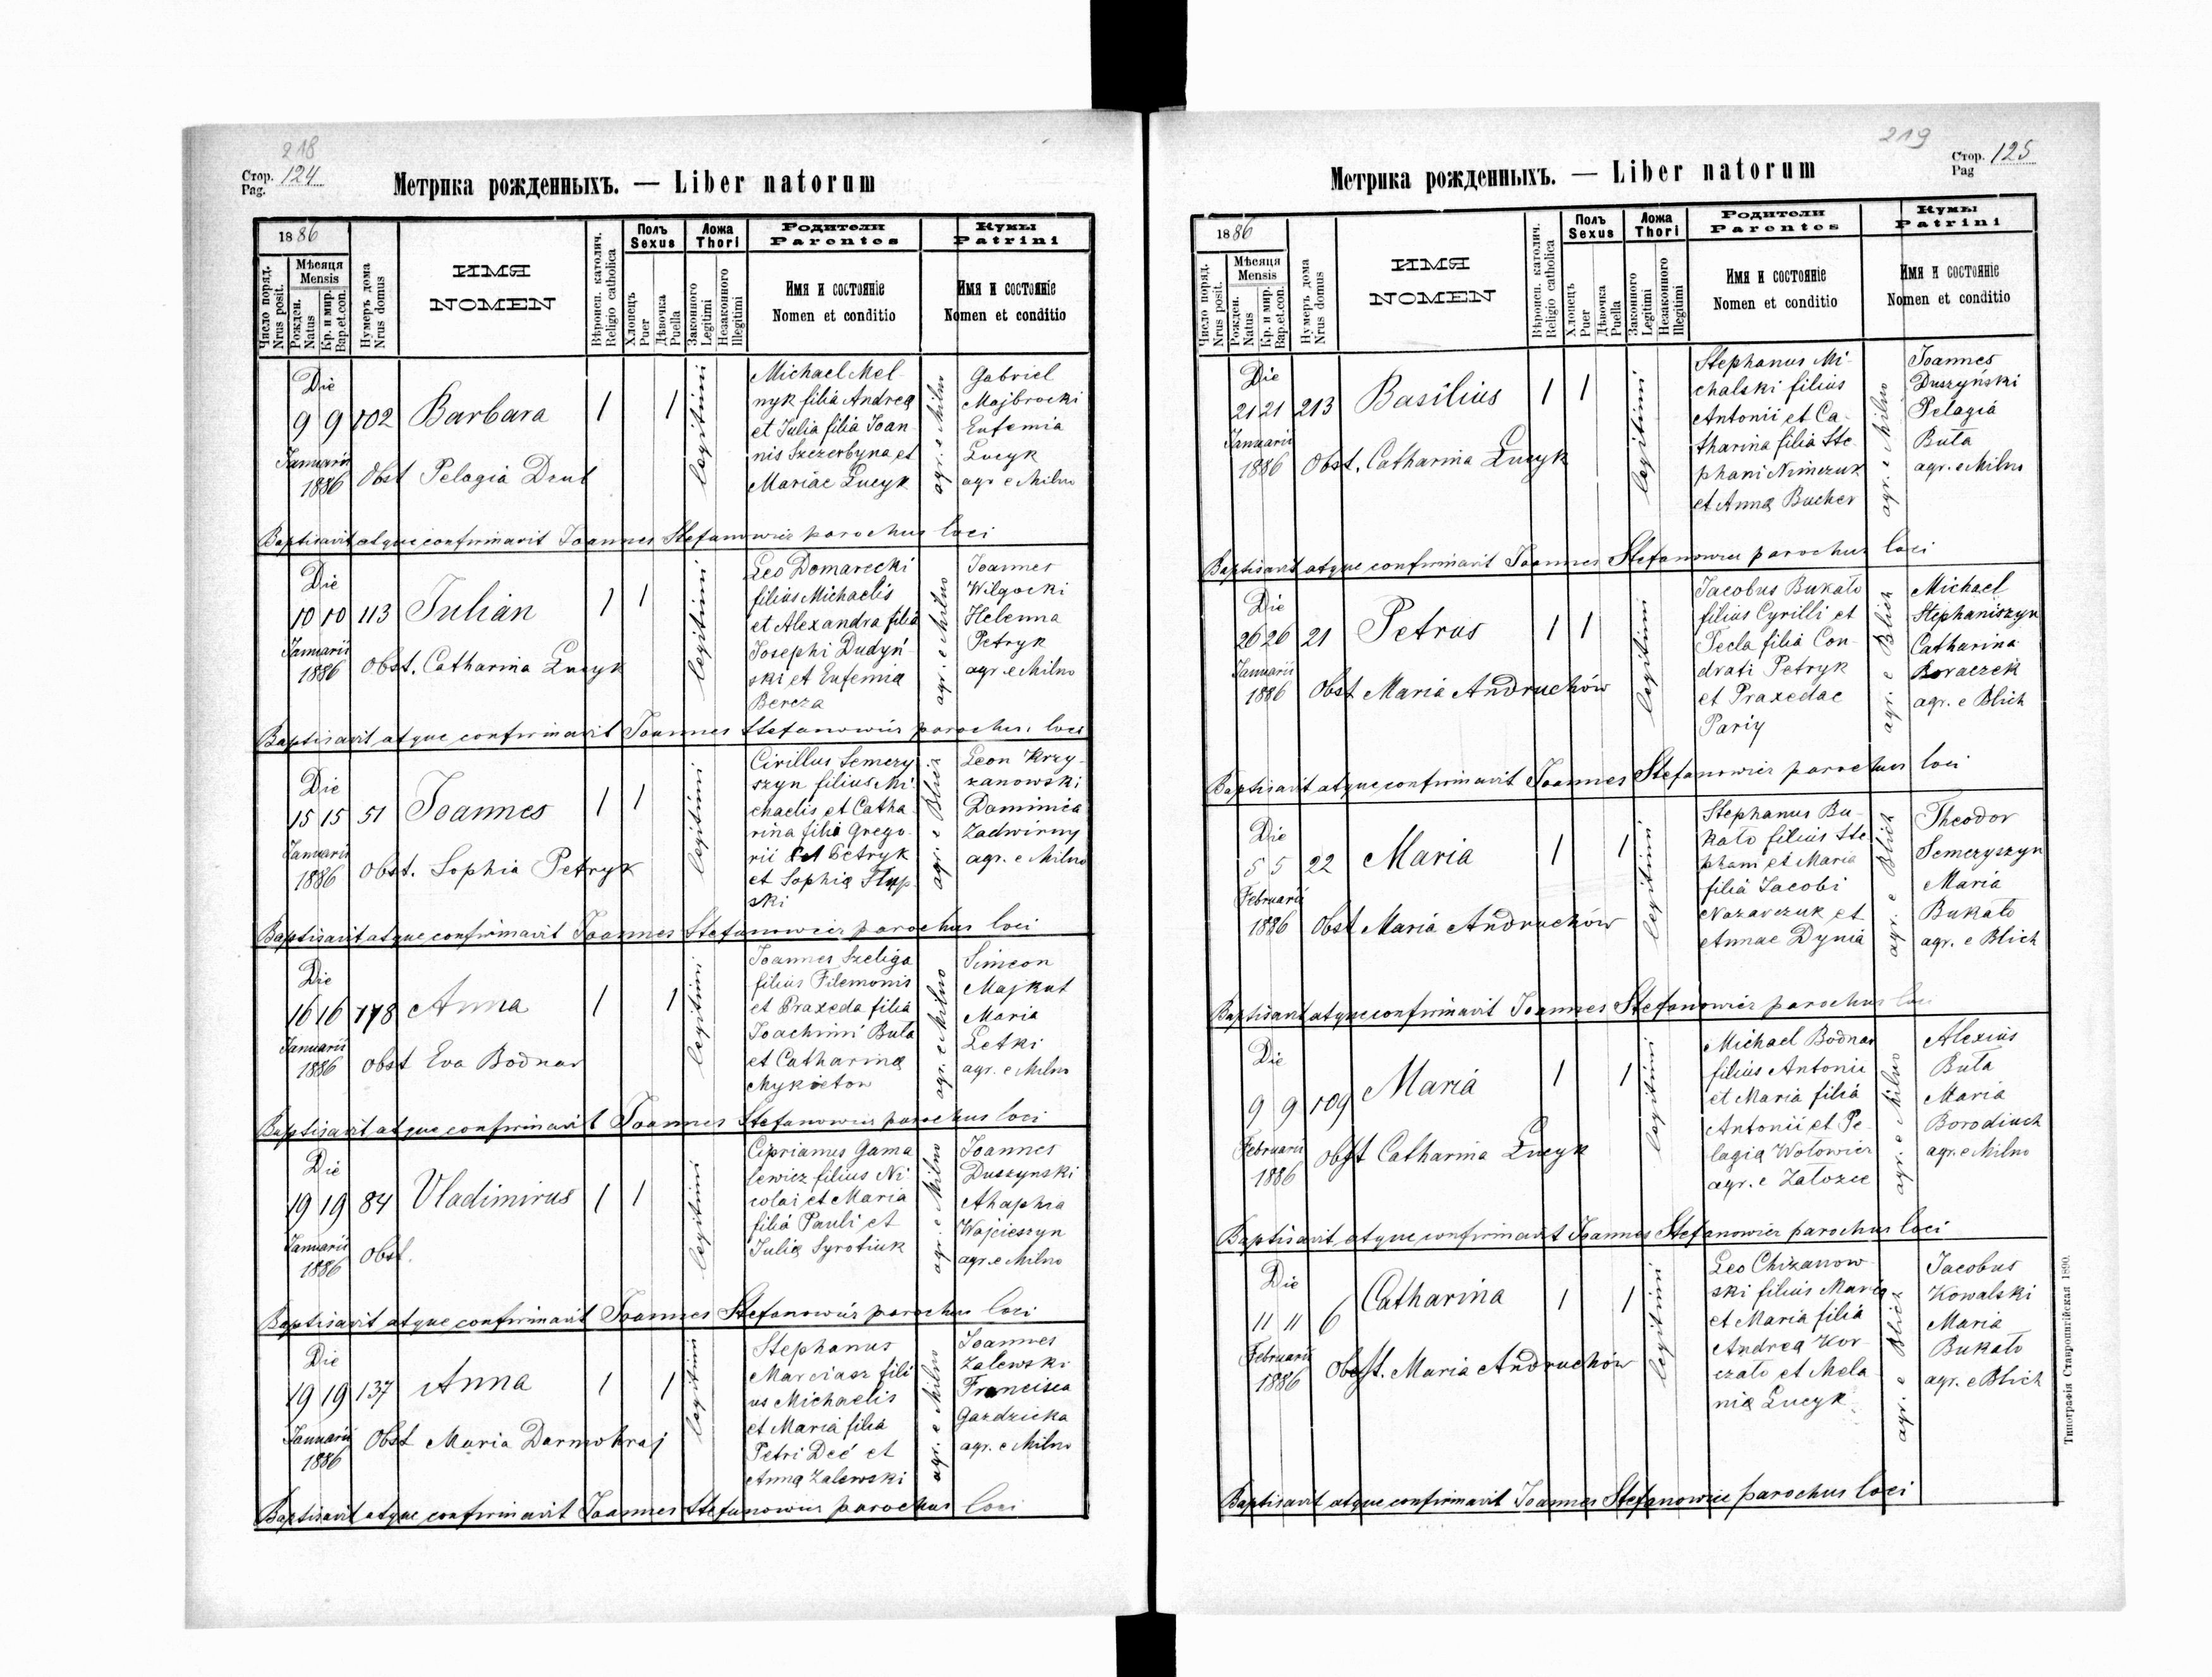 218
Стор. 124
Pag.
Метрика рожденныхъ. — Liber natorum
1886
Число поряд.
Nrus posit.
Мѣсяця
Mensis
Рожден.
Natus
Кр. и мир.
Bap.et.con.
Нумеръ дома
Nrus domus
ИМЯ
NOMEN
Вѣроисп. католич.
Religio catholica
Полъ
Sexus
Хлопецъ
Puer
Дѣвочка
Puella
Ложа
Thori
Законного
Legitimi
Незаконного
Illegitimi
Родители
Parentes
Имя и состоянiе
Nomen et conditio
Кумы
Patrini
Имя и состоянiе
Nomen et conditio
Die
9 9 102 Barbara 1 1 legitimi
Januarii
1886 Obst Pelagia Drul
Michael Mel-
nyk filia Andrea
et Julia filia Joan-
nis Szczerbyna et
Mariae Łucyk
agr. e Milno
Gabriel
Majbrocki
Eufemia
Łucyk
agr e Milno
Baptisavit atque confirmavit Joannes Stefanowicz parochus loci
Die
10 10 113 Julian 1 1 legitimi
Januarii
1886 Obst. Catharina Łucyk
Leo Domarecki
filius Michaelis
et Alexandra filia
Josephi Dudyń-
ski et Eufemia
Bereza
agr. e Milno
Joannes
Wilgocki
Helenna
Petryk
agr e Milno
Baptisavit atque confirmavit Joannes Stefanowicz parochus loci
Die
15 15 51 Joannes 1 1 legitimi
Januarii
1886 Obst. Sophia Petryk
Cirillus Semczy-
szyn filius Mi-
chaelis et Catha-
rina filia Grego-
rii Petryk
et Sophia
ski
agr. e Blich
Leon Krzy-
zanowski
Dominica
Zadwirny
agr. e Milno
Baptisavit atque confirmavit Joannes Stefanowicz parochus loci
Die
16 16 178 Anna 1 1 legitimi
Januarii
1886 Obst Eva Bodnar
Joannes Szeliga
filius Filemonis
et Praxeda filia
Joachimi Buła
et Catharina
Mykietow
agr. e Milno
Simeon
Majkut
Maria
Letki
agr. e Milno
Baptisavit atque confirmavit Joannes Stefanowicz parochus loci
Die
19 19 84 Vladimirus 1 1 legitimi
Januarii
1886 Obst.
Ciprianus Gama
lewicz filius Ni-
colai et Maria
filia Pauli et
Julia Syrotiuk
agr. e Milno
Joannes
Duszynski
Ahaphia
Wojcieszyn
agr. e Milno
Baptisavit atque confirmavit Joannes Stefanowicz parochus loci
Die
19 19 137 Anna 1 1 legitimi
Januarii
1886 Obst Maria Darmohraj
Stephanus
Marciasz fili
us Michaelis
et Maria filia
Petri Deć et
Anna Zalewski
agr. e Milno
Joannes
Zalewski
Francisca
Gazdzicka
agr. e Milno
Baptisavit atque confirmavit Joannes Stefanowicz parochus loci
219
Стор. 125
Pag
Метрика рожденныхъ. — Liber natorum
1886
Число поряд.
Nrus posit.
Мѣсяця
Mensis
Рожден.
Natus
Кр. и мир.
Bap.et.con.
Нумеръ дома
Nrus domus
ИМЯ
NOMEN
Вѣроисп. католич.
Religio catholica
Полъ
Sexus
Хлопецъ
Puer
Дѣвочка
Puella
Ложа
Thori
Законного
Legitimi
Незаконного
Illegitimi
Родители
Parentes
Имя и состоянiе
Nomen et conditio
Кумы
Patrini
Имя и состоянiе
Nomen et conditio
Die
21 21 213 Basilius 1 1 legitimi
Januarii
1886 Obst. Catharina Łucyk
Stephanus Mi-
chalski filius
Antonii et Ca-
tharina filia Ste
phani Nimczuk
et Anna Bucher
agr. e Milno
Joannes
Duszyński
Pelagia
Buła
agr. e Milno
Baptisavit atque confirmavit Joannes Stefanowicz parochus loci
Die
26 26 21 Petrus 1 1 legitimi
Januarii
1886 Obst Maria Andruchów
Jacobus Bukało
filius Cyrilli et
Tecla filia Con-
drati Petryk
et Praxedae
Pariy
agr. e Blich
Michael
Stephaniszyn
Catharina
Boraczek
agr. e Blich
Baptisavit atque confirmavit Joannes Stefanowicz parochus loci
Die
5 5 22 Maria 1 1 legitimi
Februarii
1886 Obst Maria Andruchów
Stephanus Bu-
kało filius Ste
phani et Maria
filia Jacobi
Nazarczuk et
Annae Dynia
agr. e Blich
Theodor
Semczyszyn
Maria
Bukało
agr. e Blich
Baptisavit atque confirmavit Joannes Stefanowicz parochus loci
Die
9 9 109 Maria 1 1 legitimi
Februarii
1886 Obst Catharina Łucyk
Michael Bodnar
filius Antonii
et Maria filia
Antonii et Pe-
lagia Wołowicz
agr. e Załozce
agr. e Milno
Alexius
Buła
Maria
Borodiuch
agr. e Milno
Baptisavit atque confirmavit Joannes Stefanowicz parochus loci
Die
11 11 6 Catharina 1 1 legitimi
Februarii
1886 Obst. Maria Andruchów
Leo Chizanow-
ski filius Maria
et Maria filia
Andrea Kor-
czało et Mela
nia Łucyk
agr. e Blich
Jacobus
Kowalski
Maria
Bukało
agr. e Blich
Baptisavit atque confirmavit Joannes Stefanowicz parochus loci
Типографія Ставропигійская 1890.